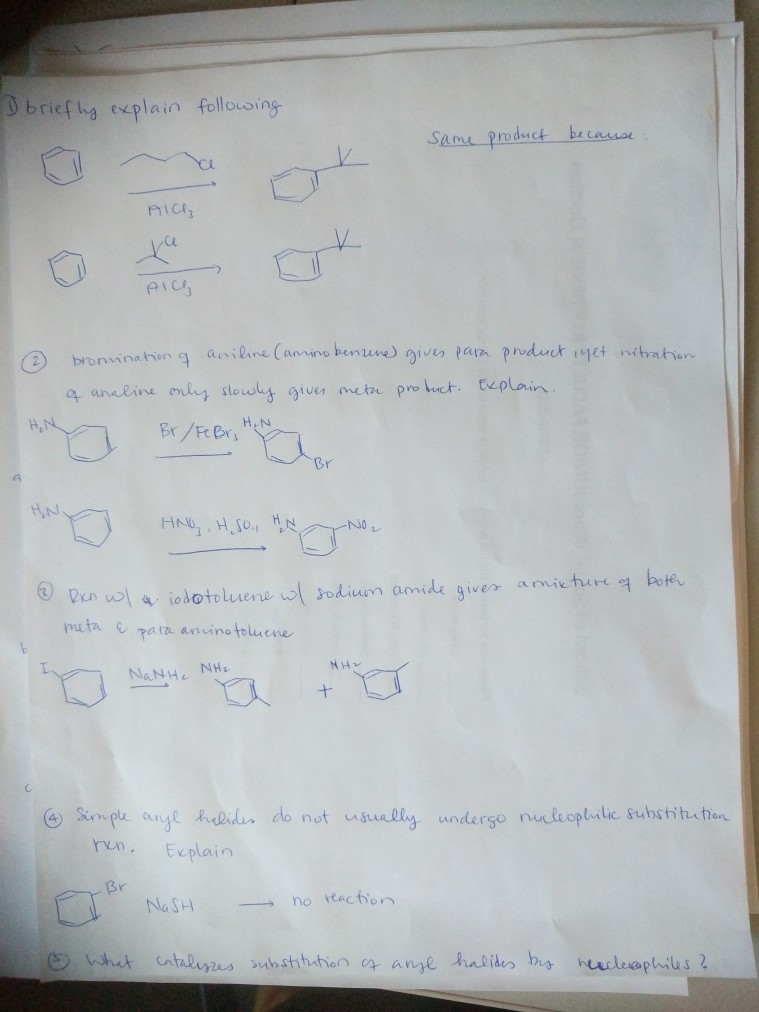 1) briefly explain following
same product because:
Cl
AlCl3
Cl
AlCl3
2 bromination of aniline (aminobenzene) gives para product, yet nitration
of analine only slowly gives meta product. Explain.
H2N Br/FeBr3 H2N
Br
a
H2N HNO3, H2SO4 H2N NO2
Rxn w/ iodotoluene w/ sodium amide gives a mixture of both
meta & para aminotoluene
b
I NaNH2 NH2 + NH2
c
4 Simple aryl halides do not usually undergo nucleophilic substitution
rxn. Explain
Br
NaSH → no reaction
5 What catalyzes substitution of aryl halides by nucleophiles?